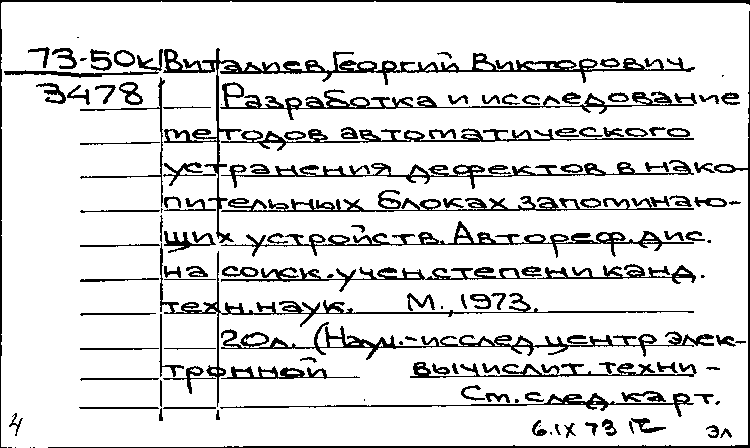 73-50к Виталиев, Георгий Викторович.
3478 Разработка и исследование
методов автоматического
устранения дефектов в нако-
пительных блоках запоминаю-
щих устройств. Автореф. дис.
на соиск. учен. степени канд.
техн. наук. М., 1973.
20л. (Науч.-исслед центр элек-
тронной вычислит. техни-
См. след. карт.
4 6.IX 73 эл